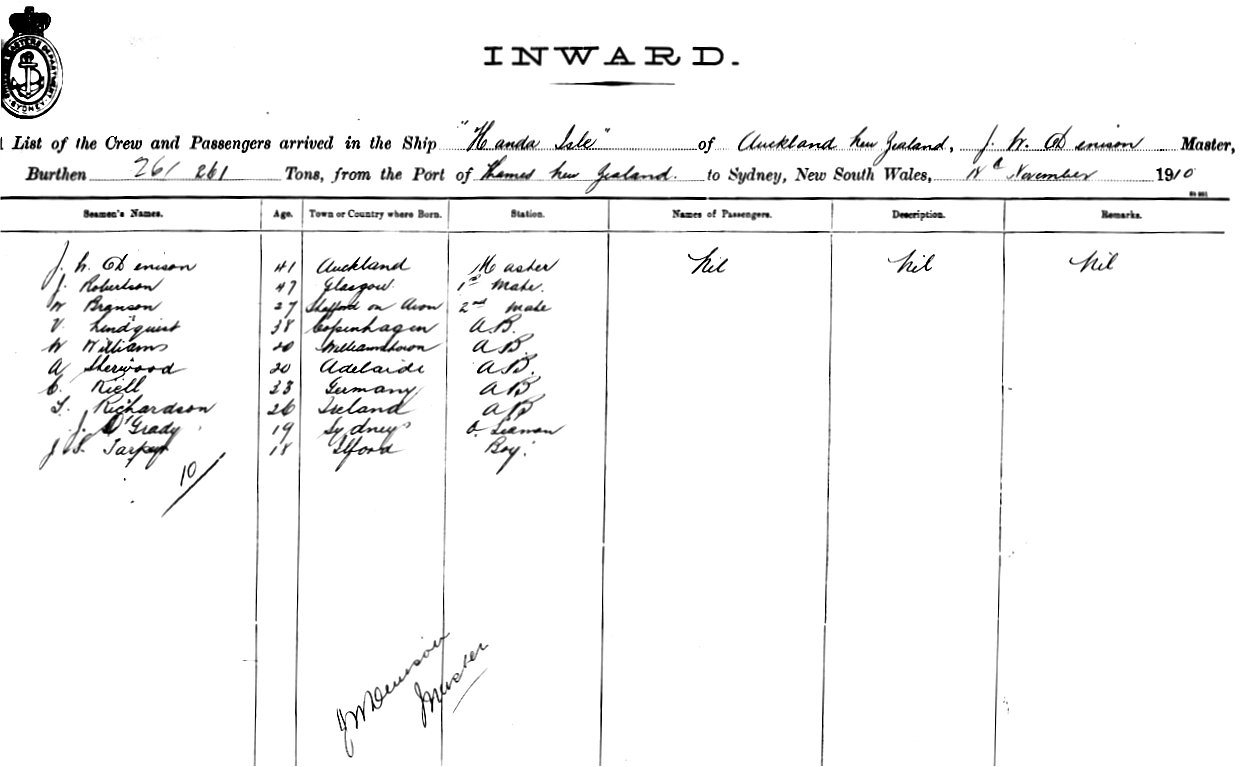 SYDNEY
INWARD.
List of the Crew and Passengers arrived in the Ship "Handa Isle" of Auckland New Zealand, J. W. Denison Master,
Burthen 261 261 Tons, from the Port of Thames New Zealand. to Sydney, New South Wales, November 1910
Seamen's Names. Age. Town or Country where Born. Station. Names of Passengers. Description. Remarks.
J. W. Denison 41 Auckland Master Nil Nil Nil
J. Robertson 47 Glasgow 1st Mate.
W Branson 27 on Avon 2nd Mate
V. Lindquist 38 Copenhagen A.B.
W Williams 20 Williamstown A.B.
A Sherwood 20 Adelaide A.B.
C. Riell 33 Germany A B
T. Richardson 26 Ireland A B
J. O'Grady 19 Sydney O. Seaman
J S. 18 Ilford Boy.
10/
JW Denison
Master